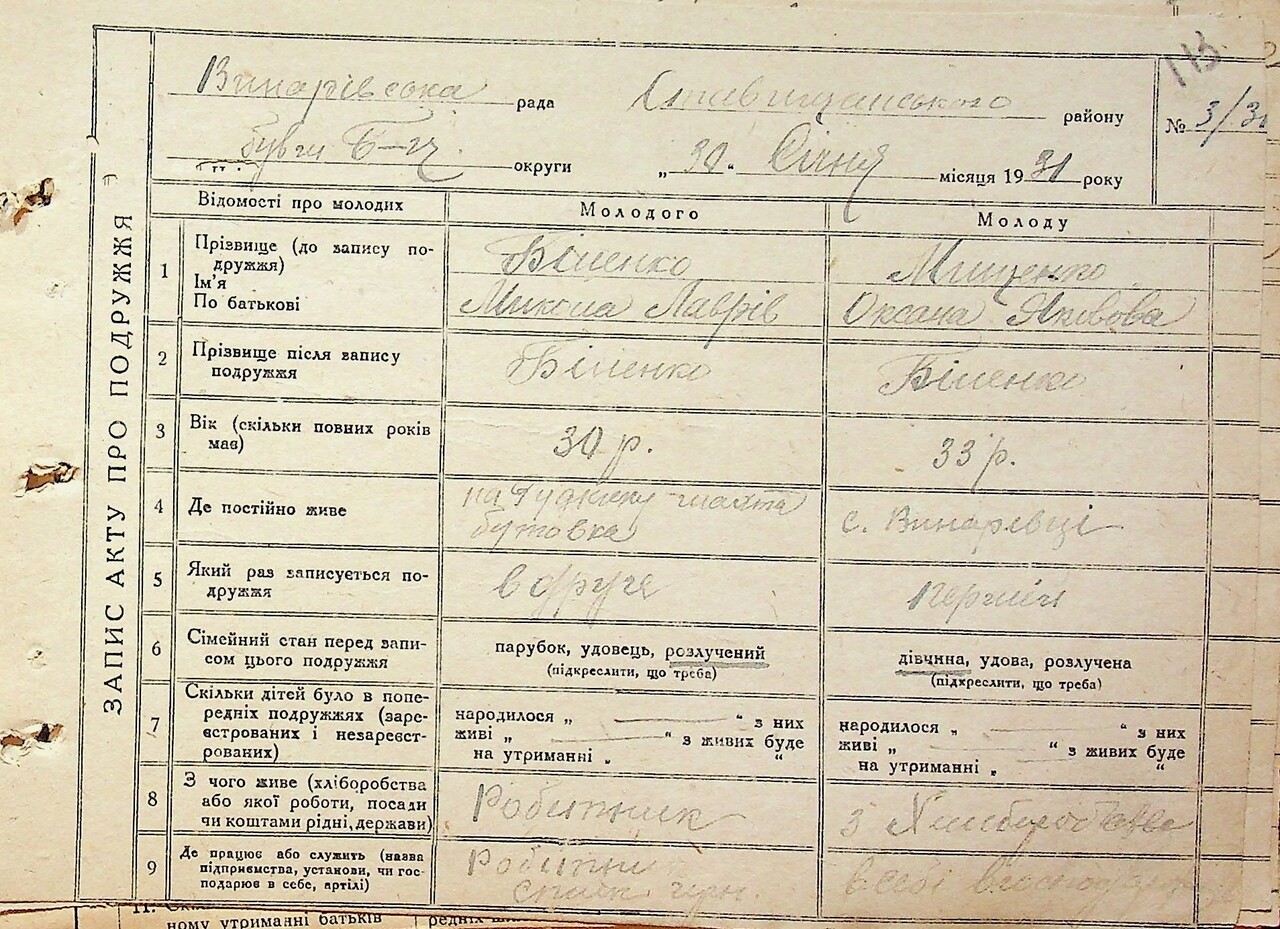 113
Винарівська рада Ставищанського району № 3/31
бувш Б-Ц. округи „30“ Січня місяця 1931 року
ЗАПИС АКТУ ПРО ПОДРУЖЖЯ
Відомості про молодих Молодого Молоду
1 Прізвище (до запису по-
дружжя) Біленко Мищенко
Ім'я
По батькові Микола Лаврів Оксана Яківова
2 Прізвище після запису
подружжя Біленко Біленко
3 Вік (скільки повних років
має) 30 р. 33 р.
4 Де постійно живе на шахта
бутовка с. Винарівці
5 Який раз записується по-
дружжя вдруге
6 Сімейний стан перед запи-
сом цього подружжя парубок, удовець, розлучений дівчина, удова, розлучена
(підкреслити, що треба) (підкреслити, що треба)
7 Скільки дітей було в попе-
редніх подружжях (заре-
єстрованих і незареєст-
рованих) народилося „ — “ з них народилося „ — “ з них
живі „ — “ з живих буде живі „ — “ з живих буде
на утриманні „ “ на утриманні „ — “
8 З чого живе (хліборобства
або якої роботи, посади
чи коштами рідні, держави) Робітник з
9 Де працює або служить (назва
підприємства, установи, чи гос-
подарює в себе, артілі) в себе
ному утриманні батьків редніх